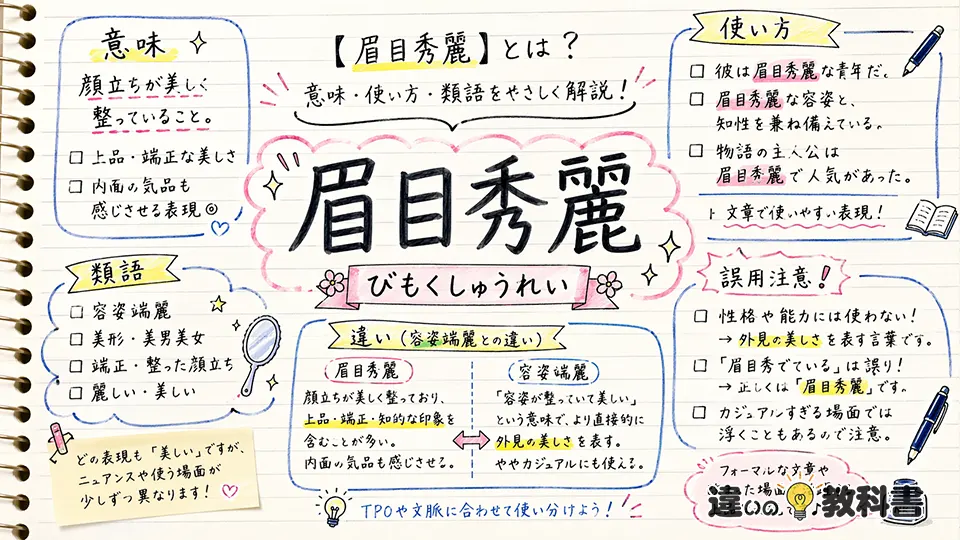 【眉目秀麗】とは？
意味・使い方・類語をやさしく解説！
眉目秀麗
びもくしゅうれい
意味
顔立ちが美しく
整っていること。
□ 上品・端正な美しさ
□ 内面の気品も
感じさせる表現◎
使い方
□ 彼は眉目秀麗な青年だ。
□ 眉目秀麗な容姿と、
知性を兼ね備えている。
□ 物語の主人公は
眉目秀麗で人気があった。
文章で使いやすい表現！
類語
□ 容姿端麗
□ 美形・美男美女
□ 端正・整った顔立ち
□ 麗しい・美しい
どの表現も「美しい」ですが、
ニュアンスや使う場面が
少しずつ異なります！
違い（容姿端麗との違い）
眉目秀麗
顔立ちが美しく整っており、
上品・端正・知的な印象を
含むことが多い。
内面の気品も感じさせる。
容姿端麗
「容姿が整っていて美しい」
という意味で、より直接的に
外見の美しさを表す。
ややカジュアルにも使える。
TPOや文脈に合わせて使い分けよう！
誤用注意！
□ 性格や能力には使わない！
→ 外見の美しさを表す言葉です。
□ 「眉目秀でている」は誤り！
→ 正しくは「眉目秀麗」です。
□ カジュアルすぎる場面では
浮くこともあるので注意。
フォーマルな文章や
た場面
違いの教科書